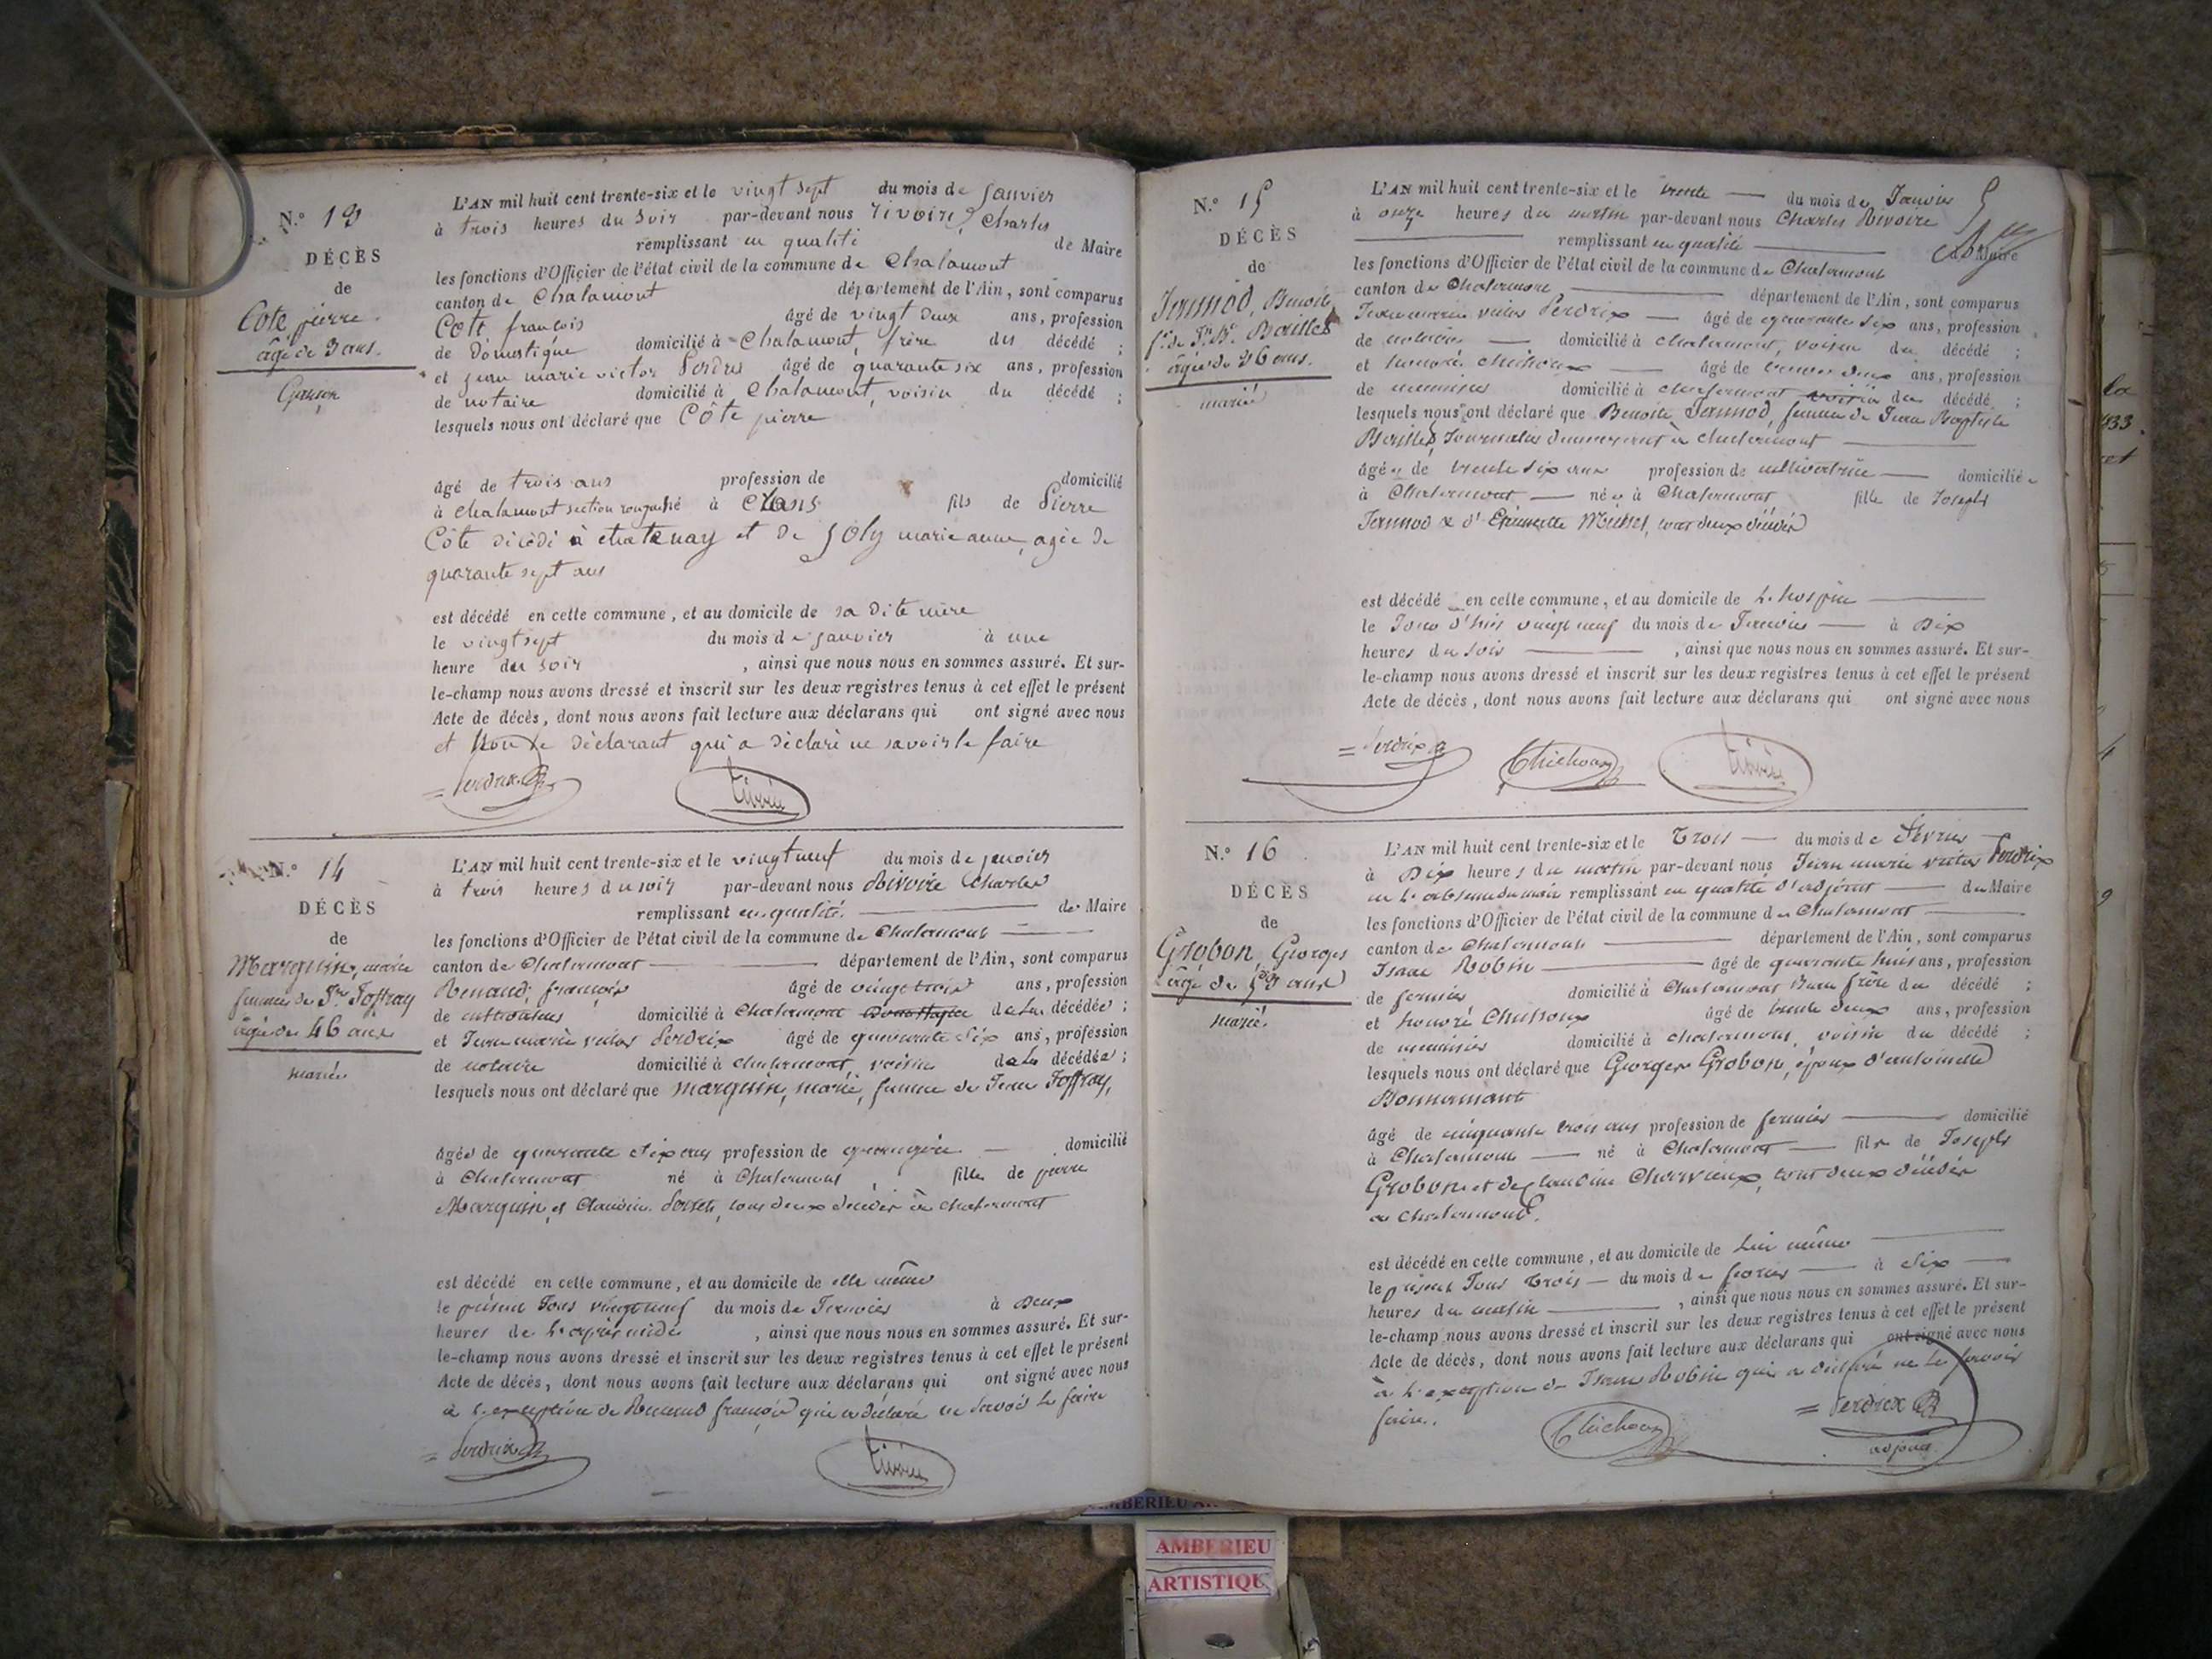 N.° 13
DÉCÈS
de
Cote pierre
âgé de 3 ans.
Garçon
L'AN mil huit cent trente-six et le vingt sept du mois de janvier
à trois heures du soir par-devant nous rivoire Charles
remplissant en qualité de Maire
les fonctions d'Officier de l'état civil de la commune de Chalamont
canton de Chalamont département de l'Ain, sont comparus
Cote françois âgé de vingt deux ans, profession
de Domestique domicilié à Chalamont, frère du décédé ;
et jean marie victor Perdrix âgé de quarante six ans, profession
de notaire domicilié à Chalamont, voisin du décédé ;
lesquels nous ont déclaré que Côte pierre
âgé de trois ans profession de domicilié
à chalamont section né à fils de Pierre
Côte décédé à chatenay et de Joly marie anne, agée de
quarante sept ans
est décédé en cette commune, et au domicile de sa dite mère
le vingt sept du mois de janvier à une
heure du soir , ainsi que nous nous en sommes assuré. Et sur-
le-champ nous avons dressé et inscrit sur les deux registres tenus à cet effet le présent
Acte de décès, dont nous avons fait lecture aux déclarans qui ont signé avec nous
et non le déclarant qui a déclaré ne savoir le faire
Perdrix
N.° 14
DÉCÈS
de
Marguin, marie
femme de Jn Joffray
âgée de 46 ans
mariée
L'AN mil huit cent trente-six et le vingt neuf du mois de janvier
à trois heures du soir par-devant nous Rivoire Charles
remplissant en qualité de Maire
les fonctions d'Officier de l'état civil de la commune de Chalamont
canton de Chalamont département de l'Ain, sont comparus
Renaud, françois âgé de vingt trois ans, profession
de cultivateur domicilié à Chalamont de la décédée ;
et Jean marie victor Perdrix âgé de quarante six ans, profession
de notaire domicilié à chalamont, voisin de la décédée ;
lesquels nous ont déclaré que marguin, marie, femme de Jean Joffray,
âgée de quarante six ans profession de domicilié
à Chalamont né à Chalamont fille de pierre
Marguin, et Claudine tous deux décédés à chalamont
est décédé en cette commune, et au domicile de elle même
le présent Jour vingt neuf du mois de Janvier à Deux
heures de l'après midi , ainsi que nous nous en sommes assuré. Et sur-
le-champ nous avons dressé et inscrit sur les deux registres tenus à cet effet le présent
Acte de décès, dont nous avons fait lecture aux déclarans qui ont signé avec nous
à l'exception de Renaud françois qui a déclaré ne savoir le faire
Perdrix
N.° 15
DÉCÈS
de
Jannod, Benoite
fe de Jn Bte
âgée de 36 ans.
mariée
L'AN mil huit cent trente-six et le trente du mois de Janvier
à onze heures du matin par-devant nous Charles Rivoire
remplissant en qualité de Maire
les fonctions d'Officier de l'état civil de la commune de Chalamont
canton de Chalamont département de l'Ain, sont comparus
Jean marie victor Perdrix âgé de quarante six ans, profession
de notaire domicilié à chalamont, voisin du décédé ;
et honoré âgé de trente deux ans, profession
de menuisier domicilié à chalamont voisin du décédé ;
lesquels nous ont déclaré que Benoite Jannod, femme de Jean Baptiste
Journalier demeurant à chalamont
âgée de trente six ans profession de cultivatrice domiciliée
à Chalamont née à Chalamont fille de Joseph
Jannod & d' Etiennette tous deux décédés
est décédé en cette commune, et au domicile de l'hospice
le Jour d'hier vingt neuf du mois de Janvier à Dix
heures du soir , ainsi que nous nous en sommes assuré. Et sur-
le-champ nous avons dressé et inscrit sur les deux registres tenus à cet effet le présent
Acte de décès, dont nous avons fait lecture aux déclarans qui ont signé avec nous
Perdrix
N.° 16
DÉCÈS
de
Grobon, Georges
âgé de 53 ans
marié.
L'AN mil huit cent trente-six et le Trois du mois de février
à Dix heures du matin par-devant nous Jean marie victor Perdrix
en l'absence du maire remplissant en qualité d'adjoint du Maire
les fonctions d'Officier de l'état civil de la commune de Chalamont
canton de Chalamont département de l'Ain, sont comparus
Isaac Robin âgé de quarante huit ans, profession
de fermier domicilié à Chalamont Beau frère du décédé ;
et honoré âgé de trente deux ans, profession
de menuisier domicilié à chalamont, voisin du décédé ;
lesquels nous ont déclaré que Georges Grobon, époux d'antoinette
âgé de cinquante trois ans profession de fermier domicilié
à Chalamont né à Chalamont fils de Joseph
Grobon et de claudine tous deux décédés
à chalamont.
est décédé en cette commune, et au domicile de lui même
le présent Jour trois du mois de février à six
heures du matin , ainsi que nous nous en sommes assuré. Et sur-
le-champ nous avons dressé et inscrit sur les deux registres tenus à cet effet le présent
Acte de décès, dont nous avons fait lecture aux déclarans qui ont signé avec nous
à l'exception de Isaac Robin qui a déclaré ne le savoir
faire.
Perdrix
adjoint
AMBERIEU
ARTISTIQUE